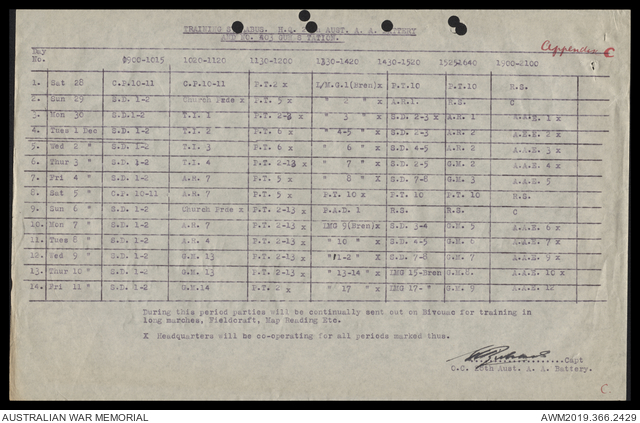 TRAINING H.Q. AUST. A. A. BATTERY
AND NO. 403 GUN STATION.
Appendix C
Day No. 0900-1015 1020-1120 1130-1200 1330-1420 1430-1520 1525-1640 1900-2100
1. Sat 28 C.P.10-11 C.P.10-11 P.T.2 x L/M.G.1(Bren)x P.T.10 P.T.10 R.S.
2. Sun 29 S.D. 1-2 Church Prde x P.T. 5 x " 2 " x A.H.1. R.S. C
3. Mon 30 S.D.1-2 T.I. 1 P.T. 2-3 x " 3 " x S.D. 2-3 x A.H. 1 A.A.E. 1 x
4. Tues 1 Dec S.D. 1-2 T.I. 2 P.T. 6 x " 4-5 " x S.D. 2-3 A.H. 2 A.A.E. 2 x
5. Wed 2 " S.D. 1-2 T.I. 3 P.T. 6 x " 6 " x S.D. 4-5 A.H. 2 A.A.E. 3 x
6. Thur 3 " S.D. 1-2 T.I. 4 P.T. 2-13 x " 7 " x S.D. 2-5 G.M. 2 A.A.E. 4 x
7. Fri 4 " S.D. 1-2 A.H. 7 P.T. 5 x " 8 " x S.D. 7-8 G.M. 3 A.A.E. 5
8. Sat 5 " C.P. 10-11 A.H. 7 P.T. 5 x P.T. 10 x P.T. 10 P.T. 10 R.S.
9. Sun 6 " S.D. 1-2 Church Prde x P.T. 2-13 x P.A.D. 1 R.S. R.S. C
10. Mon 7 " S.D. 1-2 A.H. 7 P.T. 2-13 x LMG 9(Bren)x S.D. 3-4 G.M. 5 A.A.E. 6 x
11. Tues 8 " S.D. 1-2 A.H. 4 P.T. 2-13 x " 10 " x S.D. 4-5 G.M. 6 A.A.E. 7 x
12. Wed 9 " S.D. 1-2 G.M. 13 P.T. 2-13 x " 11-2 " x S.D. 7-8 G.M. 7 A.A.E. 9 x
13. Thur 10 " S.D. 1-2 G.M. 13 P.T. 2-13 x " 13-14 " x LMG 15-Bren G.M.8. A.A.E. 10 x
14. Fri 11 " S.D. 1-2 G.M.14 P.T. 2 x " 17 " x LMG 17- " G.M. 9 A.A.E. 12
During this period parties will be continually sent out on Bivouac for training in
long marches, Fieldcraft, Map Reading Etc.
X Headquarters will be co-operating for all periods marked thus.
Capt
O.C. Aust. A. A. Battery.
C.
AUSTRALIAN WAR MEMORIAL AWM2019.366.2429